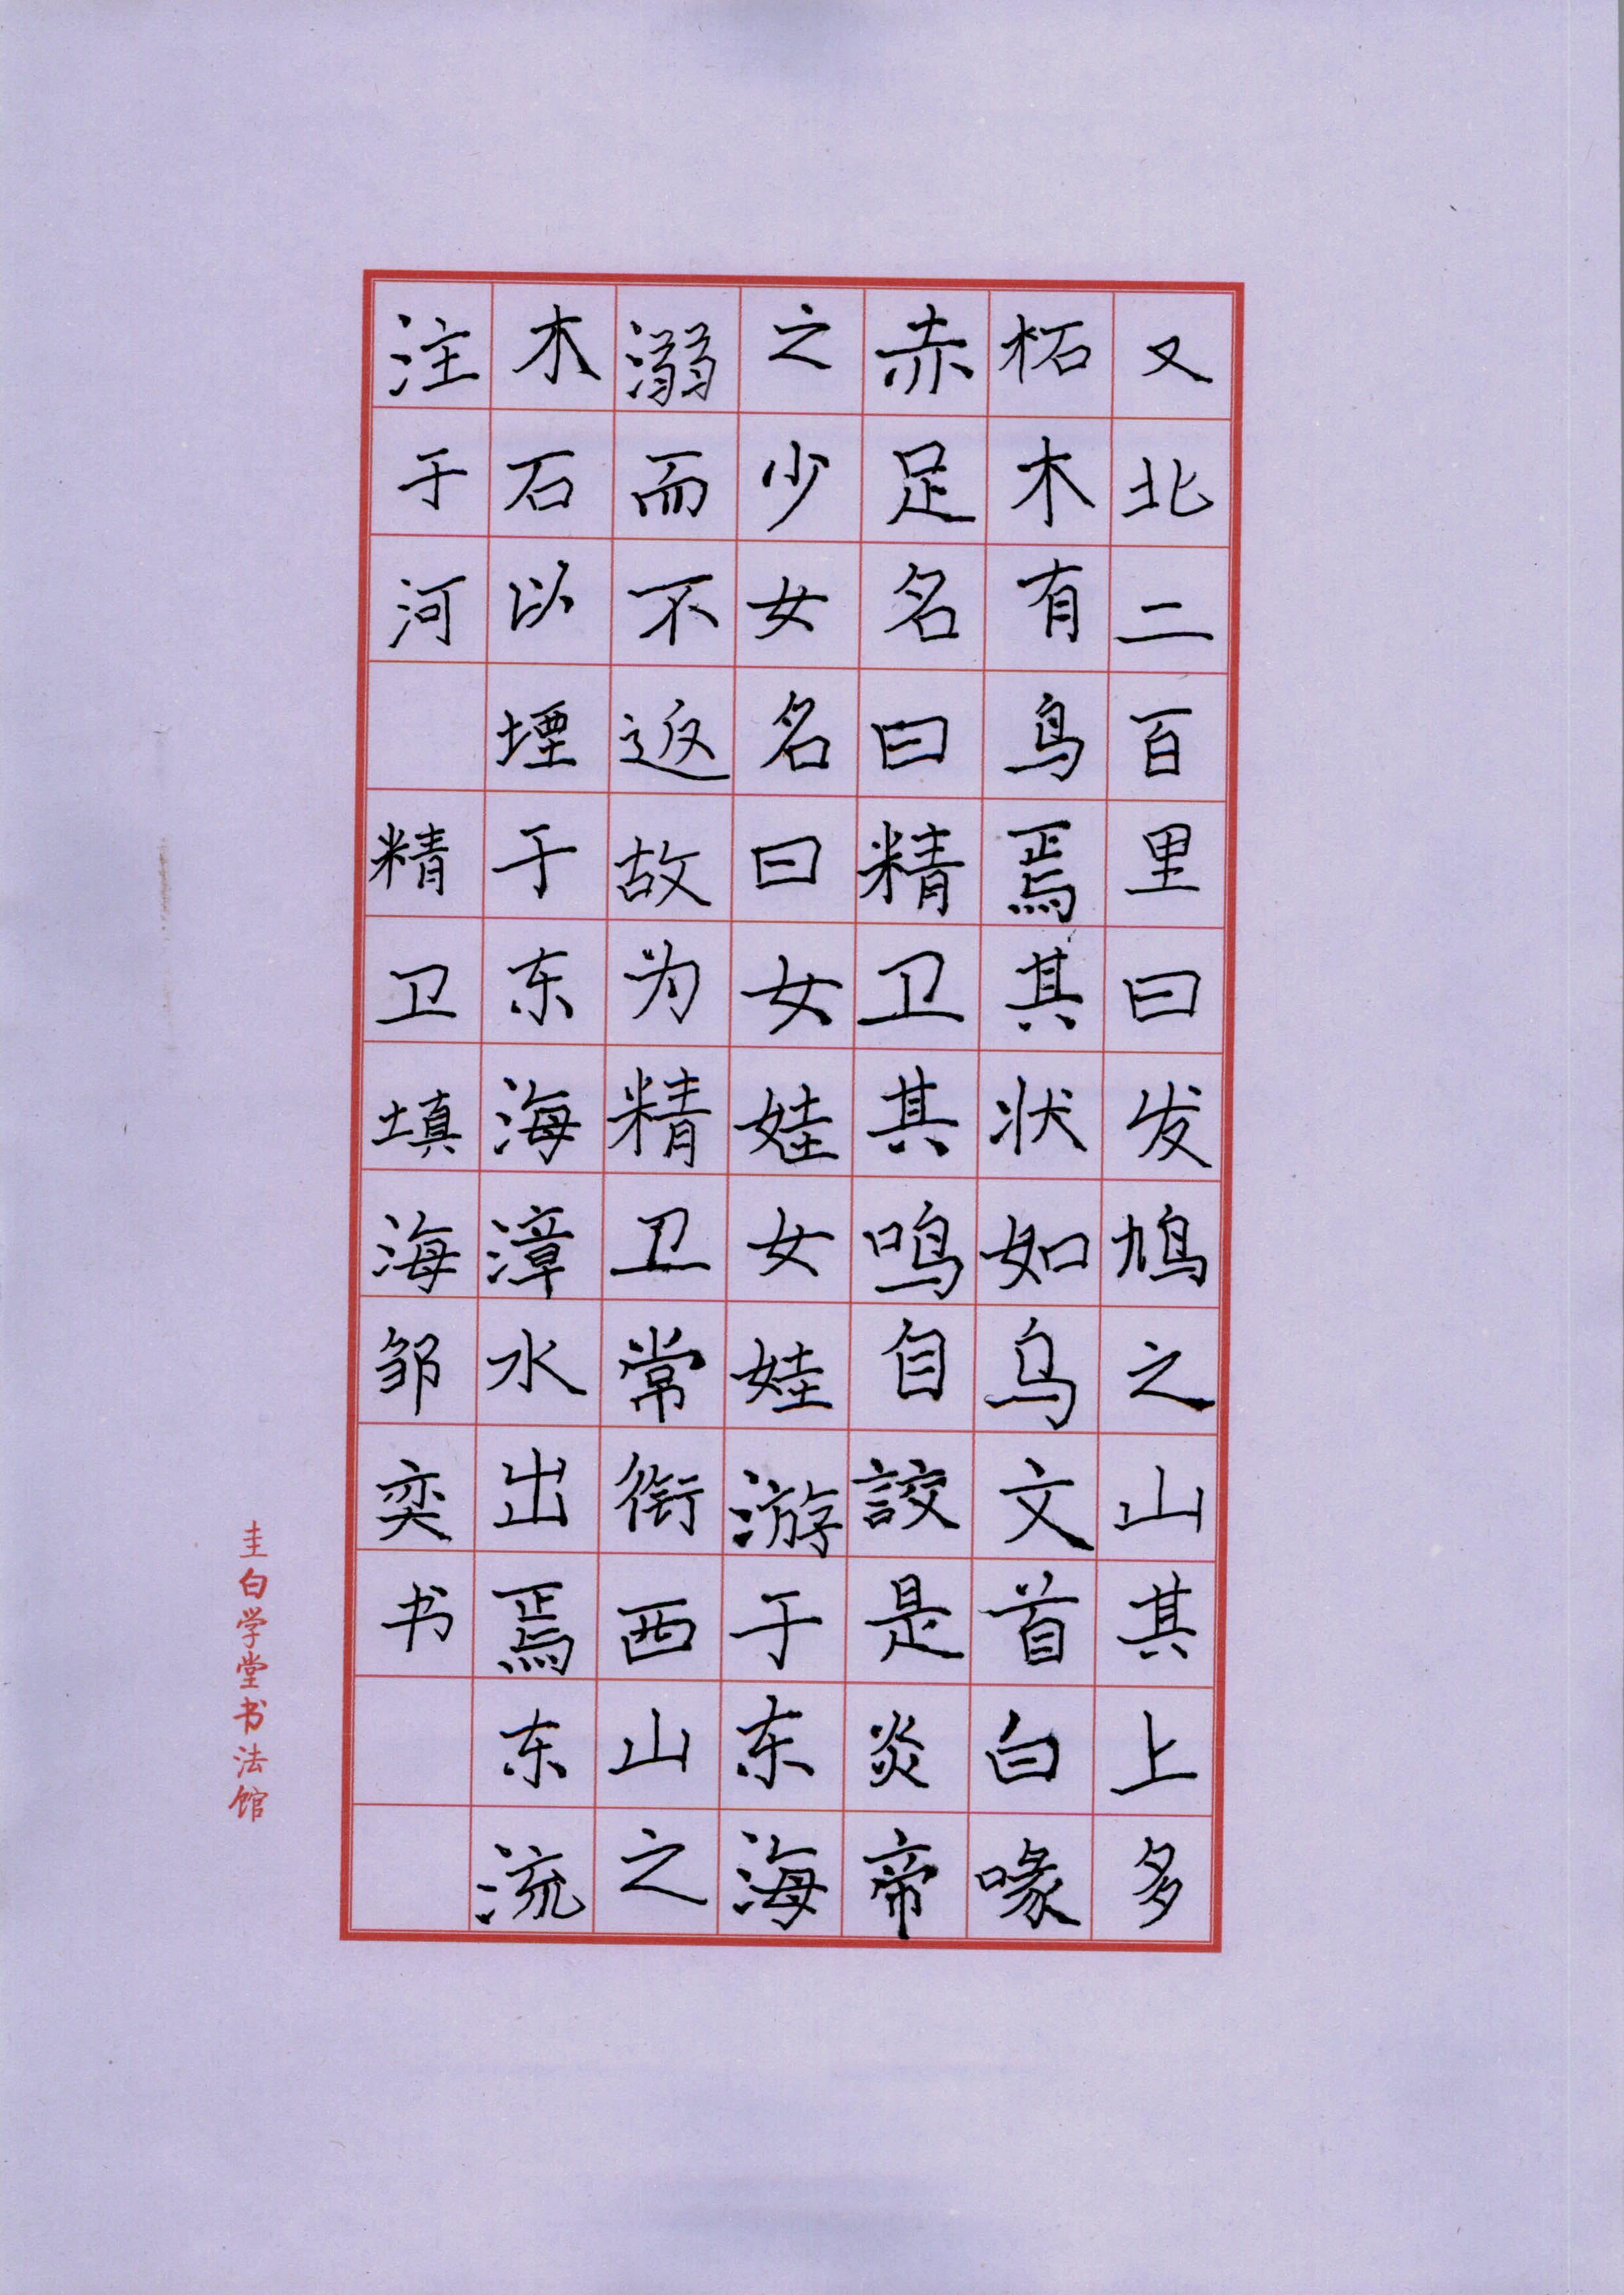 又北二百里曰发鸠之山其上多
柘木有鸟焉其状如乌文首白喙
赤足名曰精卫其鸣自詨是炎帝
之少女名曰女娃女娃游于东海
溺而不返故为精卫常衔西山之
木石以堙于东海漳水出焉东流
注于河 精卫填海邹奕书
圭白学堂书法馆